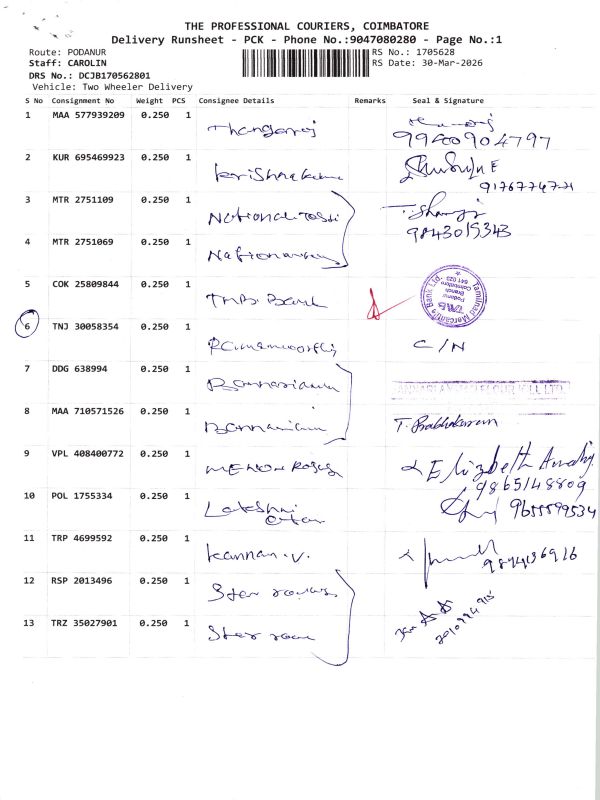 THE PROFESSIONAL COURIERS, COIMBATORE
Delivery Runsheet - PCK - Phone No.:9047080280 - Page No.:1
Route: PODANUR
RS No.: 1705628
Staff: CAROLIN
RS Date: 30-Mar-2026
DRS No.: DCJB170562801
Vehicle: Two Wheeler Delivery
S No Consignment No Weight PCS Consignee Details Remarks Seal & Signature
1 MAA 577939209 0.250 1 Thangaraj
99400904797
2 KUR 695469923 0.250 1 krishnakumar
3 MTR 2751109 0.250 1 National
9843015343
4 MTR 2751069 0.250 1
5 COK 25809844 0.250 1 TMB Bank
Tamilnad Mercantile Bank Ltd.
Podanur Branch
Coimbatore
641 023
6 TNJ 30058354 0.250 1 Ramamoorthy C/N
7 DDG 638994 0.250 1
8 MAA 710571526 0.250 1 T. Prabhakaran
9 VPL 408400772 0.250 1 MENON Elizbeth
9865148809
10 POL 1755334 0.250 1 Lakshmi 9655599534
11 TRP 4699592 0.250 1 Kannan.V.
12 RSP 2013496 0.250 1 Star
13 TRZ 35027901 0.250 1 Star